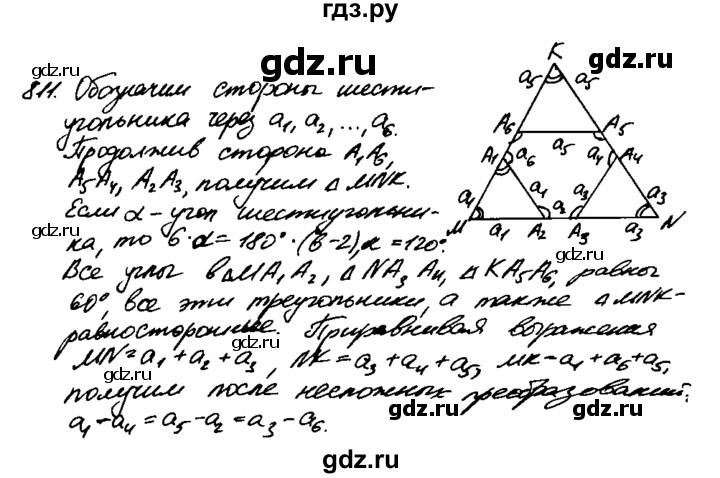 гдз.ру
gdz.ru
gdz.ru
gdz.ru
811. Обозначим стороны шести-
угольника через a₁, a₂, ..., a₆.
Продолжив стороны A₁A₆,
A₅A₄, A₂A₃, получим △ MNK.
Если α – угол шестиугольни-
ка, то 6·α = 180°·(6-2), α = 120°.
Все углы в △MA₁A₂, △ NA₃A₄, △ KA₅A₆, равны
60°, все эти треугольники, а также △ MNK-
равносторонние. Приравнивая выражения
MN = a₁ + a₂ + a₃, NK = a₃ + a₄ + a₅, MK = a₁ + a₆ + a₅,
получим после несложных преобразований:
a₁ - a₄ = a₅ - a₂ = a₃ - a₆.
K
a₅ a₅
A₆ a₅ A₅
A₁ a₆ a₄ A₄
a₁ a₁ a₃ a₃
M a₁ A₂ a₂ A₃ a₃ N
gdz.ru
gdz.ru
gdz.ru
gdz.ru
gdz.ru
gdz.ru
gdz.ru
gdz.ru
gdz.ru